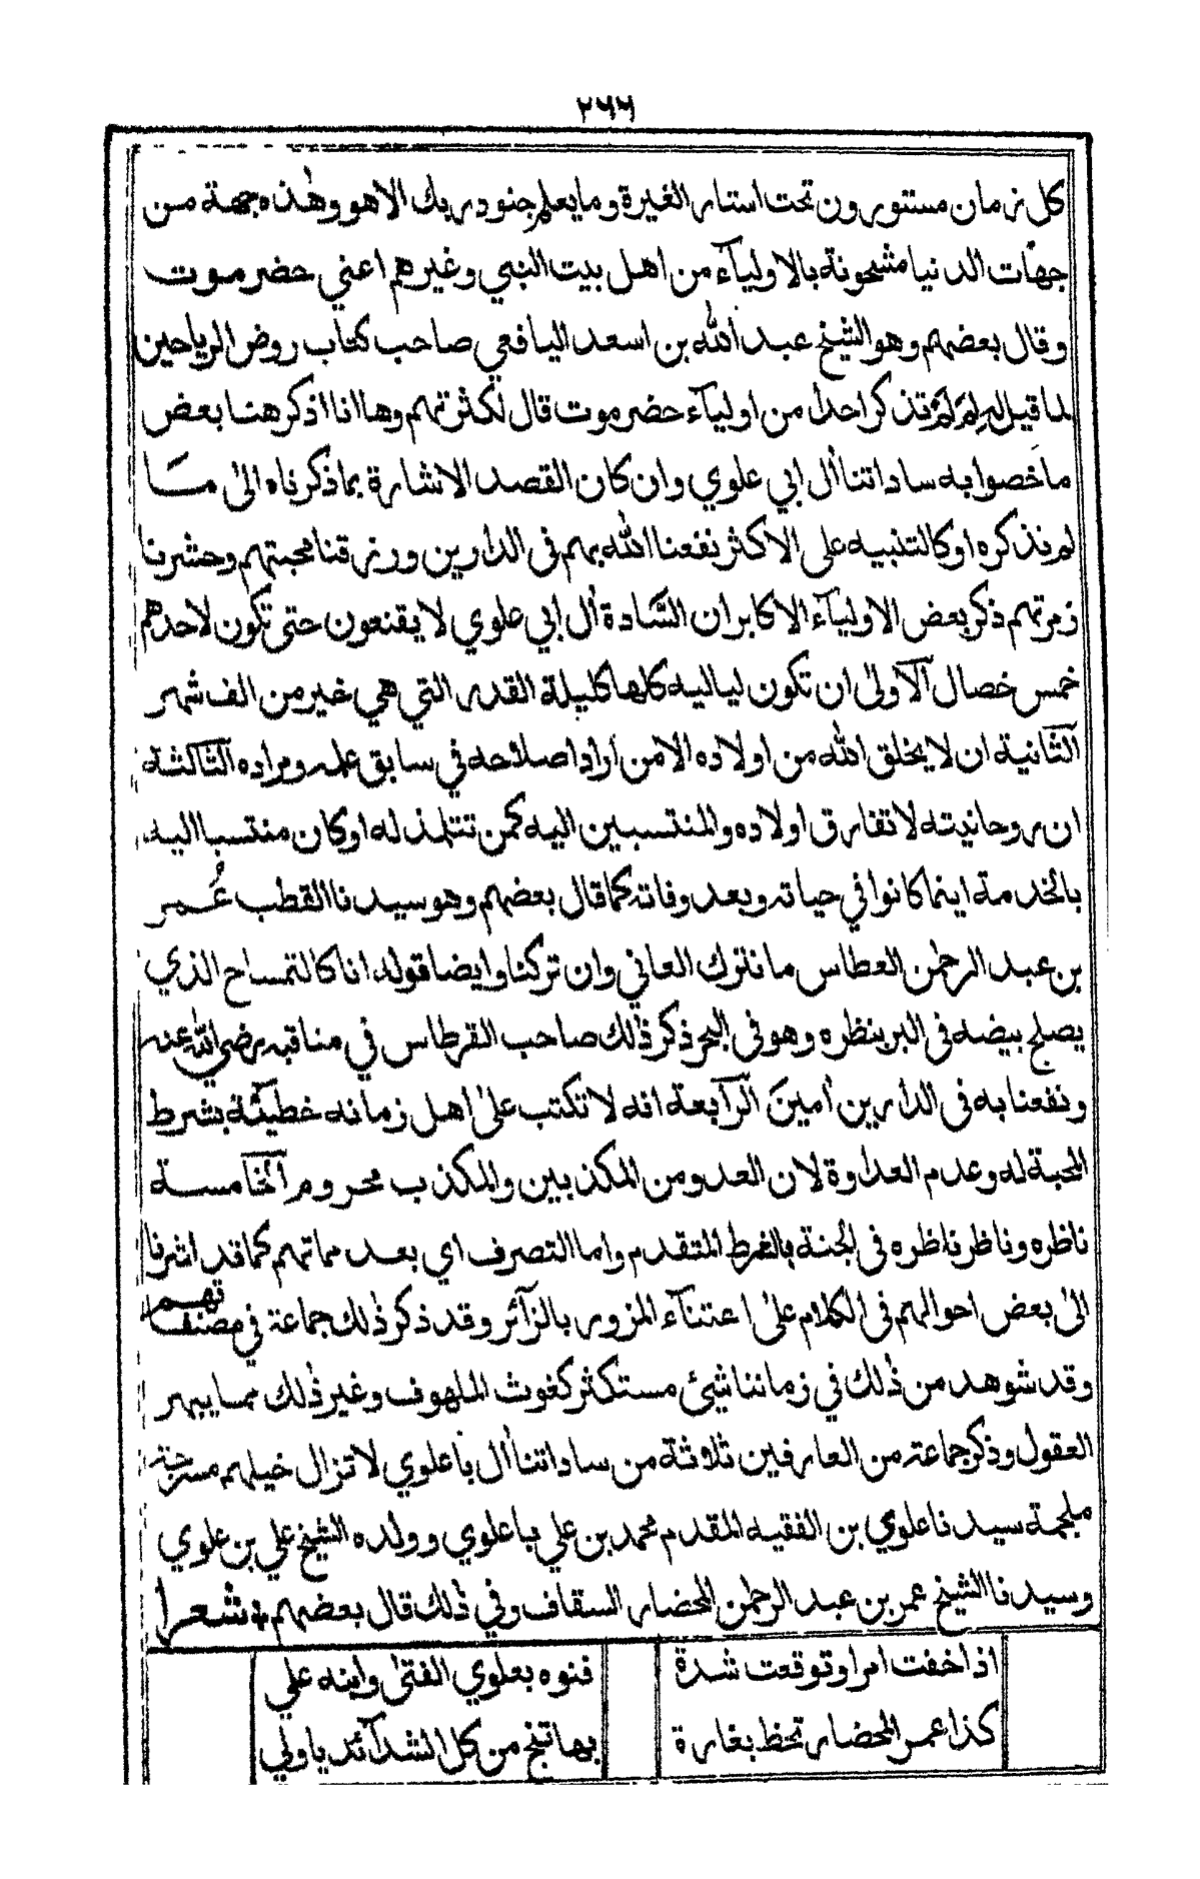 ٢٦٦
كل زمان مستورون تحت استار الغيرة وما يعلم جنود ربك الا هو وهٰذه جهة من
جهات الدنيا مشحونة بالاوليآء من اهل بيت النبي وغيرهم اعني حضرموت
وقال بعضهم وهو الشيخ عبد الله بن اسعد اليافعي صاحب كتاب روض الرياحين
لما قيل له لم لم تذكر احدا من اوليآء حضرموت قال لكثرتهم وها انا اذكر هنا بعض
ما خصوا به ساداتنا اٰل ابي علوي وان كان القصد الاشارة بما ذكرناه الىٰ ما
لم نذكره او كالتنبيه على الاكثر نفعنا الله بهم فى الدارين ورزقنا محبتهم وحشرنا
زمرتهم ذكر بعض الاوليآء الاكابر ان السَّادة اٰل ابي علوي لا يقنعون حتى تكون لاحدهم
خمس خصال الاولىٰ ان تكون لياليه كلها كليلة القدر التي هي خير من الف شهر
الثانية ان لا يخلق الله من اولاده الا من اراد اصلاحه في سابق علمه ومراده الثالثة
ان روحانيته لا تفارق اولاده والمنتسبين اليه كمن تتلمذ له او كان منتسبا اليه
بالخدمة اينما كانوا في حياته وبعد وفاته كما قال بعضهم وهو سيدنا القطب عُمر
بن عبد الرحمٰن العطاس ما نترك العاني وان تركنا وايضا قوله انا كالتمساح الذي
يصلح بيضه فى البر بنظره وهو فى البحر ذكر ذٰلك صاحب القرطاس في مناقبه رضي الله عنه
ونفعنا به فى الدارين اٰمينَ الرابعة انه لا تكتب علىٰ اهل زمانه خطيئة بشرط
المحبة له وعدم العداوة لان العدو من المكذبين والمكذب محروم الخامسة
ناظره وناظر ناظره فى الجنة بالشرط المتقدم واما التصرف اي بعد مماتهم كما قد اشرنا
الىٰ بعض احوالهم فى الكلام علىٰ اعتنآء المزور بالزآئر وقد ذكر ذٰلك جماعة في مصنفاتهم
وقد شوهد من ذٰلك في زماننا شيئ مستكثر كغوث الملهوف وغير ذٰلك مما يبهر
العقول وذكر جماعة من العارفين ثلاثة من ساداتنا اٰل باعلوي لا تزال خيلهم مسرجة
ملجمة سيدنا علوي بن الفقيه المقدم محمد بن علي باعلوي وولده الشيخ علي بن علوي
وسيدنا الشيخ عمر بن عبد الرحمٰن المحضار السقاف وفي ذٰلك قال بعضهم شعرا
اذا خفت امرا وتوقعت شدة فنوه بعلوي الفتىٰ وابنه علي
كذا عمر المحضار تحظ بغارة بها تنج من كل الشدآئد يا ولي